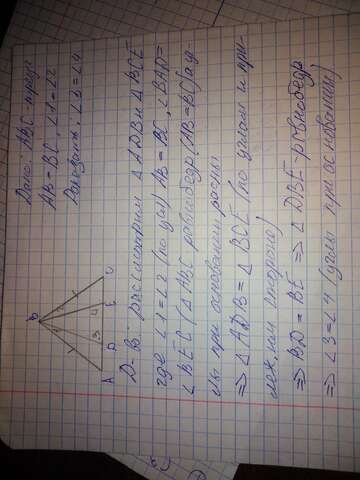 Дано: ABC треуг
AB = BC, ∠1 = ∠2
Доказать: ∠3 = ∠4
B
1 2
3 4
A D E C
Д-во: рассмотрим △ADB и △BCE
где ∠1=∠2 (по усл) AB = BC, ∠BAD=
∠BEC (△ABC равнобедр (AB=BC) уг
лы при основании равны
⇒ △ADB = △BCE (по углам и при-
леж. им стороне)
⇒ BD = BE ⇒ △DBE - равнобедр
⇒ ∠3=∠4 (углы при основании)